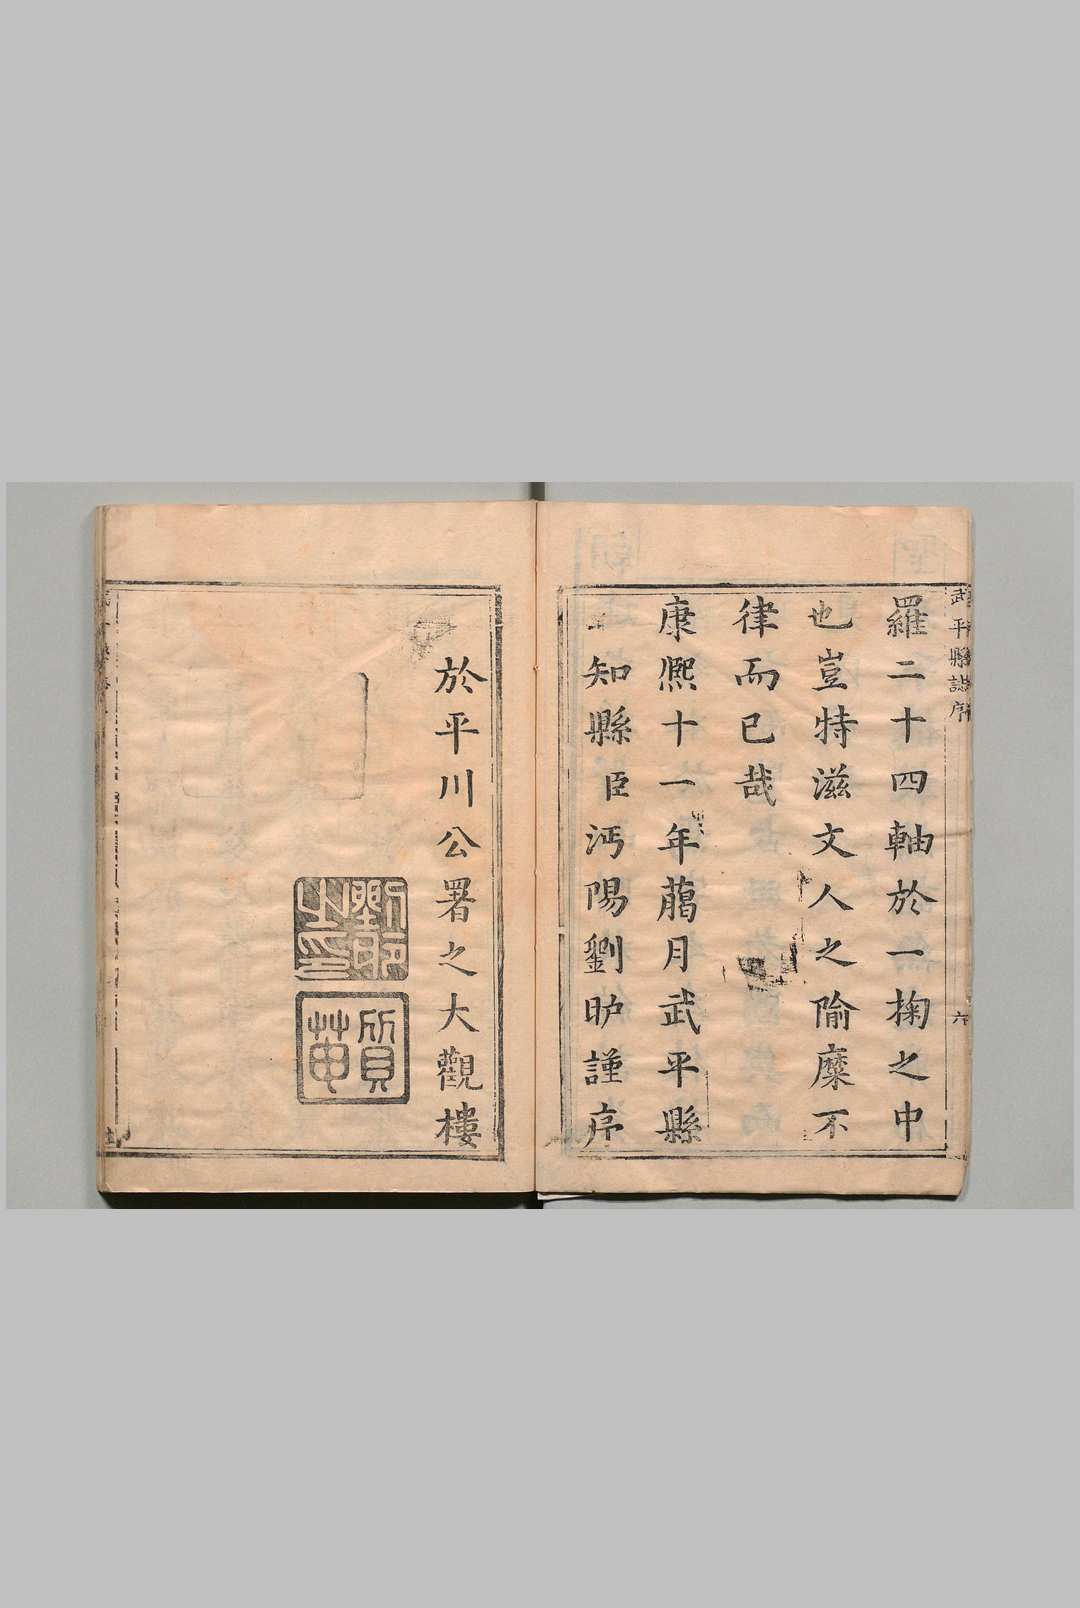 武平縣誌序
六
羅二十四軸於一掬之中
也豈特滋文人之隃糜不
律而已哉
康熙十一年蕅月武平縣
知縣臣沔陽劉旷謹序
於平川公署之大觀樓
質菴